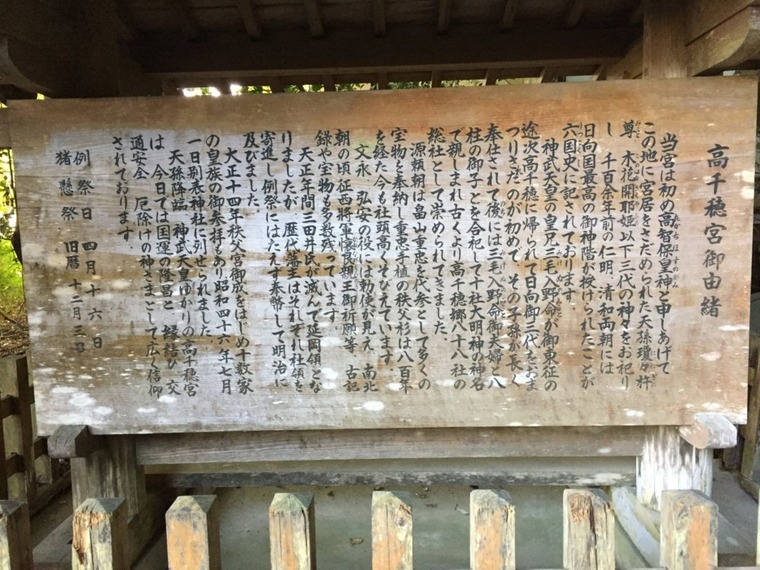 高千穂宮御由緒
当宮は初め高智保皇神と申しあげて
この地に宮居をさだめられた天孫瓊々杵
尊 木花開耶姫以下三代の神々をお祀り
し 千百余年前の仁明 清和両朝には
日向国最高の御神階が授けられたことが
六国史に記されております。
神武天皇の皇兄三毛入野命が御東征の
途次高千穂に帰られて日向御三代をおま
つりされたのが初めで その子孫が長く
奉仕されて後には三毛入野命御夫婦と八
柱の御子とを合祀して十社大明神の神名
で親しまれ古くより高千穂郷八十八社の
総社として崇められてきました。
源頼朝は畠山重忠を代参として多くの
宝物を奉納し重忠手植の秩父杉は八百年
を経た今も社頭高くそびえています。
文永 弘安の役には勅使が見え 南北
朝の頃征西将軍懐良親王御祈願等 古記
録や宝物も多数残っています。
天正年間三田井氏が滅んで延岡領とな
りましたが、歴代藩主はそれぞれ社領を
寄進し例祭にはたえず奉幣して明治に
及びました。
大正十四年秩父宮御成をはじめ十数家
の皇族の御参拝あり昭和四十六年七月
一日別表神社に列せられました。
天孫降臨 神武天皇ゆかりの高千穂宮
は 今日では国運の隆昌と 縁結び 交
通安全 厄除けの神さまとして広く信仰
されております。
例祭日 四月十六日
猪懸祭 旧暦十二月三日